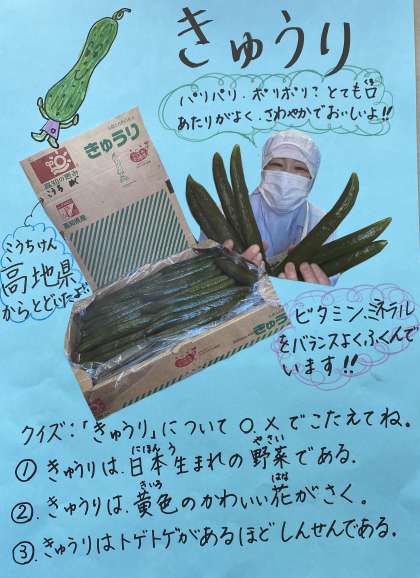 きゅうり
パリパリ、ポリポリ?とても口
くち
あたりがよく、さわやかでおいしいよ!!
きゅうり
高知の恵み
こうち めぐ
高知県産
こうちけん
高地県
からとどいたよ!!
きゅうり
ビタミン、ミネラル
をバランスよくふくんで
います!!
クイズ:「きゅうり」について〇、×でこたえてね。
にほんう やさい
①きゅうりは、日本生まれの野菜である。
きいろ はな
②きゅうりは、黄色のかわいい花がさく。
③きゅうりはトゲトゲがあるほどしんせんである。